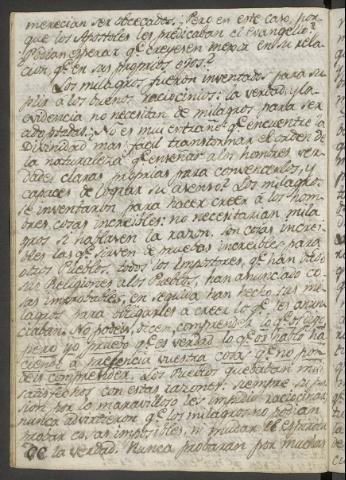 merecian ser obcecados. Pero en este caso, por
que los Apostoles les predicaban el Evangelio?
Podian esperar qe. creyesen mejor en su rela-
cion, qe. en sus propios ojos?
Los milagros fueron inventados para su-
plir a los buenos raciocinios: la verdad, y la
evidencia no necesitan de milagros para ser
adoptadas. ¿No es muy extraño qe. encuentre la
Divinidad mas facil transtornar el orden de
la naturaleza qe. enseñar a los hombres ver-
dades claras, propias para convencerlos, y
capaces de lograr su asenso? Los milagros
se inventaron para hacer creer a los hom-
bres cosas increibles: no necesitarian mila-
gros si hablasen la razon. Son cosas increi-
bles las qe. sirven de pruebas increibles para
otros Pueblos. Todos los impostores, qe. han dado
sus Religiones a los Pueblos, han anunciado co-
sas improbables, en seguida han hecho sus mi-
lagros para obligarles a creer lo qe. les anun-
ciaban. No podeis, dicen, comprender lo qe. os digo
pero yo pruebo qe. es verdad lo qe. os hablo ha-
ciendo a presencia vuestra cosas qe. no po-
deis comprender. Los Pueblos quedaban muy
satisfechos con estas razones: siempre su pa-
sion por lo maravilloso les impidio raciocinar
nunca advirtieron qe. los milagros no podian
probar cosas imposibles, ni mudar la esencia
de la verdad. Nunca probaran por muchos